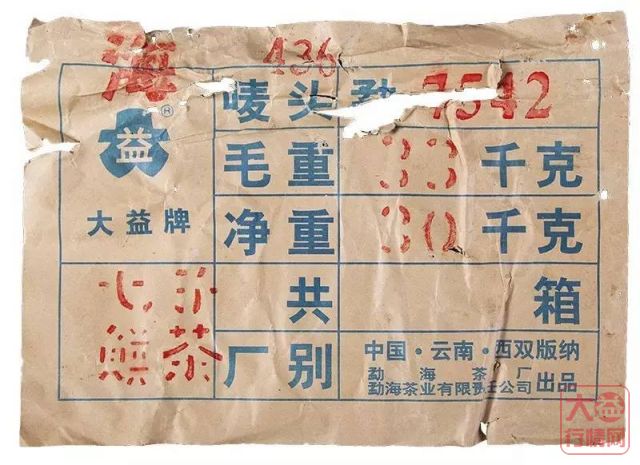 海 436
唛头 勐 7542
益 ®
毛重 33 千克
大益牌 净重 30 千克
七子 共 箱
饼茶 厂别 中国·云南·西双版纳
勐海茶厂
勐海茶业有限责任公司 出品
大益
行情网